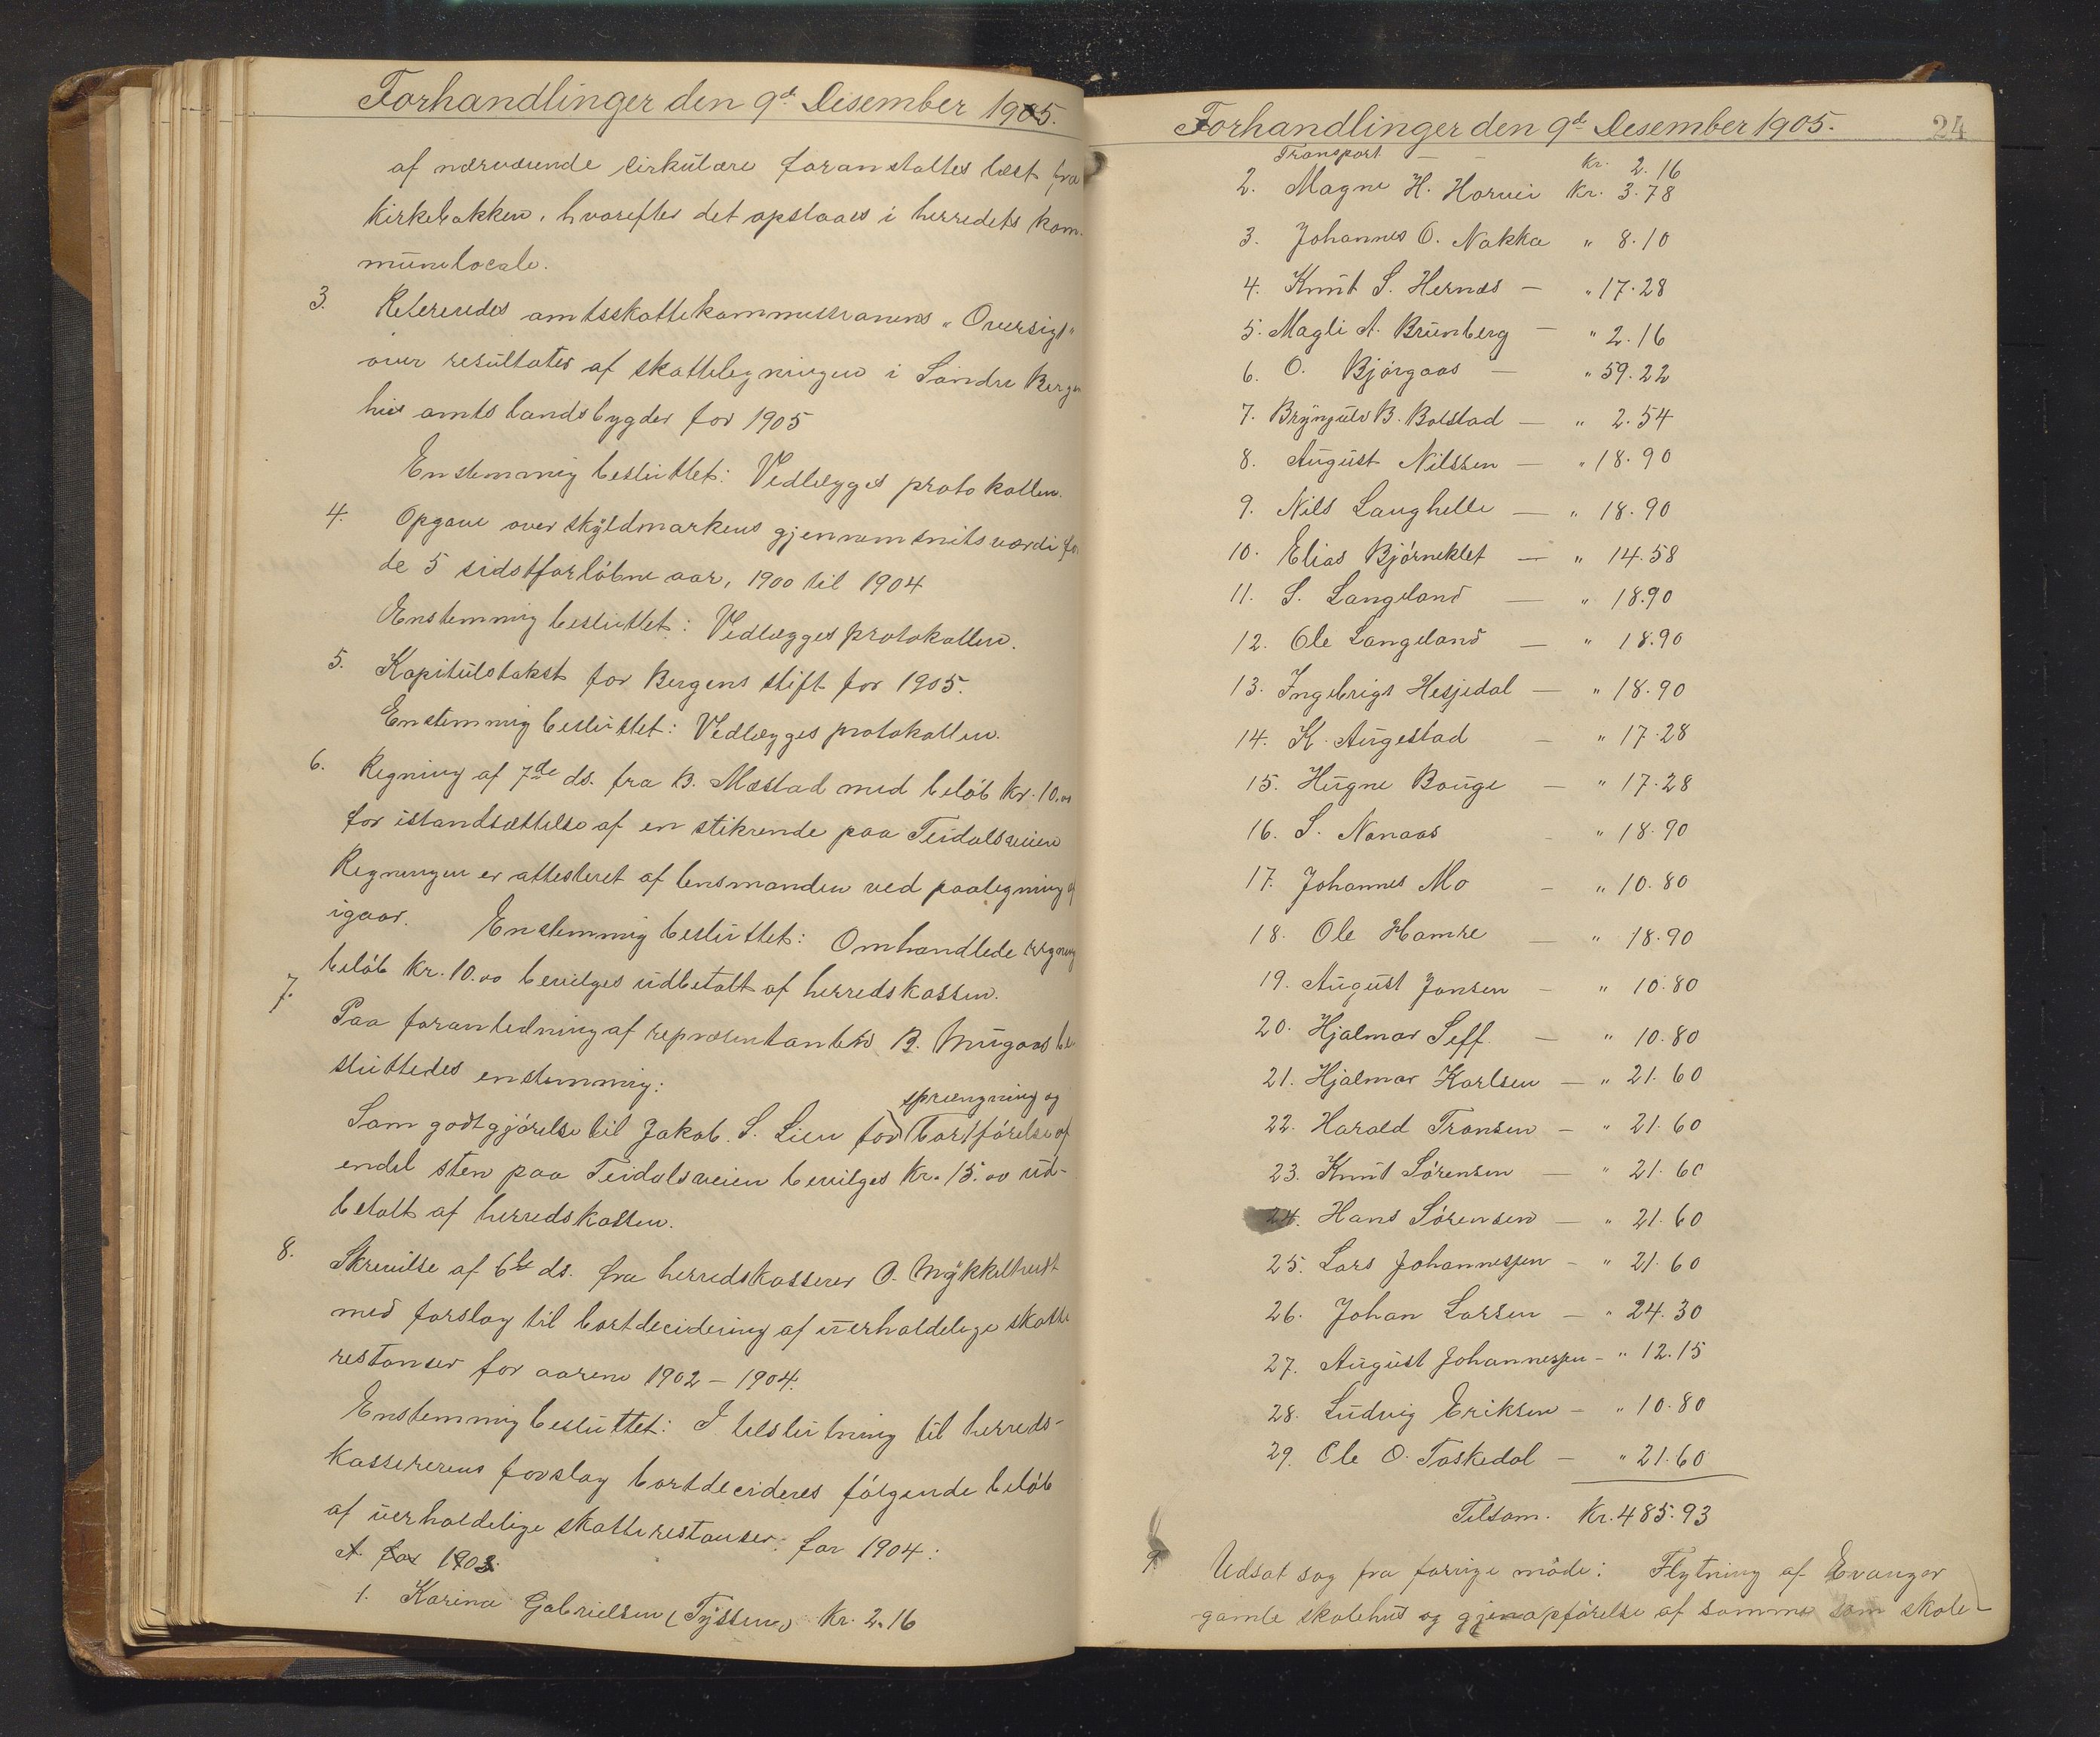 Forhandlinger den 9d. Desember 1905.
af nærværende cirkulære foranstaltes læst fra
kirkebakken, hvorefter det opslaaes i herredets kom-
munelocale.
3. Refereredes amtsskattekommissionens "Oversigt"
over resultatet af skattelegningen i Søndre Bergen
hus amts landsbygder for 1905
Enstemmig besluttet: Vedlægges protokollen.
4. Opgave over skyldmarkens gjennemsnitsværdi for
de 5 sidstforløbne aar, 1900 til 1904
Enstemmig besluttet: Vedlægges protokollen.
5. Kapitulstakst for Bergens stift for 1905.
Enstemmig besluttet: Vedlægges protokollen.
6. Regning af 7de ds. fra B. Mæstad med beløb Kr. 10.00
for istandsættelse af en stikrende paa Teidalsveien
Regningen er attesteret af lensmanden ved paategning af
igaar. Enstemmig besluttet: Omhandlede regning
beløb Kr. 10.00 bevilges udbetalt af herredskassen.
7. Paa foranledning af repræsentanten B. Mugaas be-
sluttedes enstemmig:
sprængning og
Som godtgjørelse til Jakob S. Lien for bortførelse af
endel sten paa Teidalsveien bevilges Kr. 15.00 ud-
betalt af herredskassen.
8. Skrivelse af 6te ds. fra herredskasserer O. Mykkeltvedt
med forslag til bortdecidering af uerholdelige skatte
restanser for aarene 1902 - 1904.
Enstemmig besluttet: I tilslutning til herreds-
kassererens forslag bortdecideres følgende beløb
af uerholdelige skatterestanser: for 1904:
A. for 1903.
1. Karina Gabrielsen (Tyssen) Kr. 2.16
Forhandlinger den 9d. Desember 1905.
24
Transport — — Kr. 2.16
2. Magne H. Horvei Kr. 3.78
3. Johannes O. Nakka " 8.10
4. Knut S. Hernes — " 17.28
5. Magli A. Brunberg — " 2.16
6. O. Bjørgaas — " 59.22
7. Brynjulv B. Bolstad — " 2.54
8. August Nilssen — " 18.90
9. Nils Langhelle — " 18.90
10. Elias Bjørneklet — " 14.58
11. S. Langeland — " 18.90
12. Ole Langeland — " 18.90
13. Ingebrigt Hesjedal — " 18.90
14. K. Augestad — " 17.28
15. Hugne Bouge — " 17.28
16. S. Nonaas - " 18.90
17. Johannes Mo - " 10.80
18. Ole Hamre — " 18.90
19. August Jansen - " 10.80
20. Hjalmar Seff. — " 10.80
21. Hjalmar Karlsen — " 21.60
22. Harald Transen — " 21.60
23. Knut Sørensen — " 21.60
24. Hans Sørensen — " 21.60
25. Lars Johannesen - " 21.60
26. Johan Larsen — " 24.30
27. August Johannesen - " 12.15
28. Ludvig Eriksen — " 10.80
29. Ole O. Taskedal — " 21.60
Tilsam. Kr. 485.93
9. Udsat sag fra forrige møde: Flytning af Evanger
gamle skolehus og gjenopførelse af samme som skole-